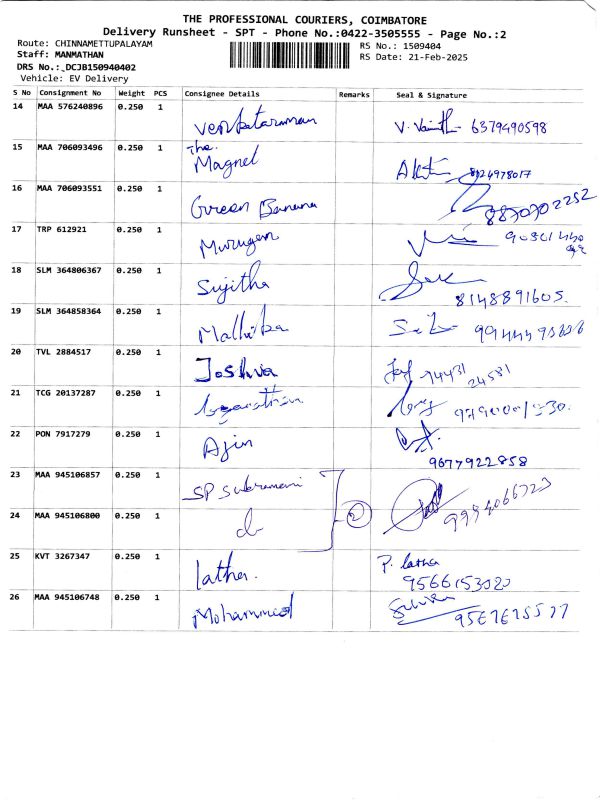 THE PROFESSIONAL COURIERS, COIMBATORE
Delivery Runsheet - SPT - Phone No.:0422-3505555 - Page No.:2
Route: CHINNAMETTUPALAYAM RS No.: 1509404
Staff: MANMATHAN RS Date: 21-Feb-2025
DRS No.: DCJB150940402
Vehicle: EV Delivery
S No Consignment No Weight PCS Consignee Details Remarks Seal & Signature
14 MAA 576240896 0.250 1 Venkataraman 6379490598
15 MAA 706093496 0.250 1 The Magnet 8124978017
16 MAA 706093551 0.250 1 Green Banana 8870702252
17 TRP 612921 0.250 1 Murugan
18 SLM 364806367 0.250 1 Sujitha 8148891605.
19 SLM 364858364 0.250 1 Mathika
20 TVL 2884517 0.250 1 Joshva 74431 24581
21 TCG 20137287 0.250 1
22 PON 7917279 0.250 1 Ajin 9677922858
23 MAA 945106857 0.250 1 SP Subramani
24 MAA 945106800 0.250 1 do 2 9994066723
25 KVT 3267347 0.250 1 latha. P. latha
9566153020
26 MAA 945106748 0.250 1 Mohammed